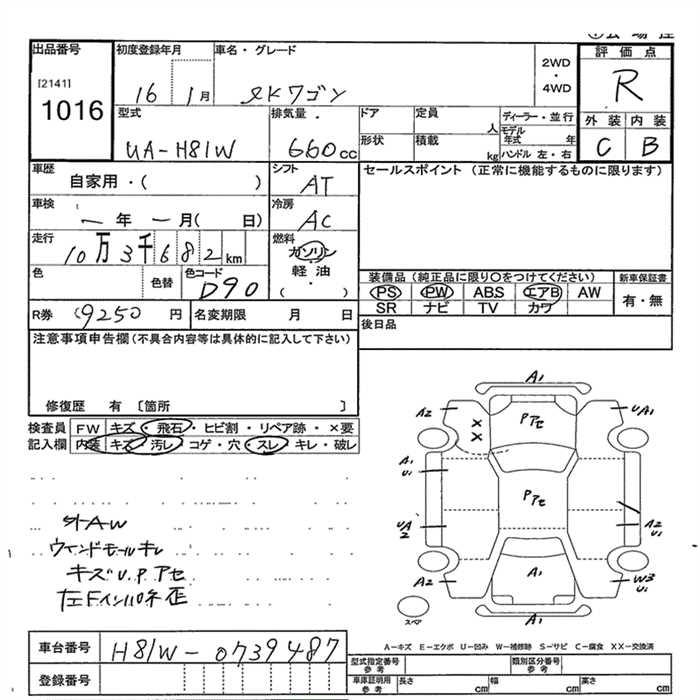 出品番号
[2141]
1016
初度登録年月
16 1月
車名・グレード
eKワゴン
2WD
・
4WD
評価点
R
外装 内装
C B
型式
UA-H81W
排気量
660cc
ドア
形状
定員 人
積載 kg
ディーラー・並行
モデル年式 年
ハンドル 左・右
車歴
自家用・( )
シフト
AT
車検
ー年ー月( 日)
冷房
AC
走行
10万3千682km
燃料
ガソリン
軽・油
( ・ )
色
色替
色コード
D90
R券
9250円
名変期限 月 日
セールスポイント (正常に機能するものに限ります)
装備品(純正品に限り○をつけてください)
PS PW ABS エアB AW
SR ナビ TV カワ
新車保証書
有・無
後日品
注意事項申告欄(不具合内容等は具体的に記入して下さい)
修復歴 有 〔箇所 〕
検査員記入欄
FW キズ・飛石・ヒビ割・リペア跡・×要
内装 キズ・汚レ・コゲ・穴・スレ・キレ・破レ
社外AW
ウインドモールキレ
キズU.Pアセ
左Fインパネ歪
A1
A2
UA1
Pアセ
XX
A1
U1
Pアセ
UA
2
A2
U1
A2
A1
W3
U1
A1
スペア
A-キズ E-エクボ U-凹み W-補修跡 S-サビ C-腐食 XX-交換済
車台番号
H81W-0739487
登録番号
型式指定番号
参考
類別区分番号
参考
車庫証明用
参考
長さ cm
幅 cm
高さ cm